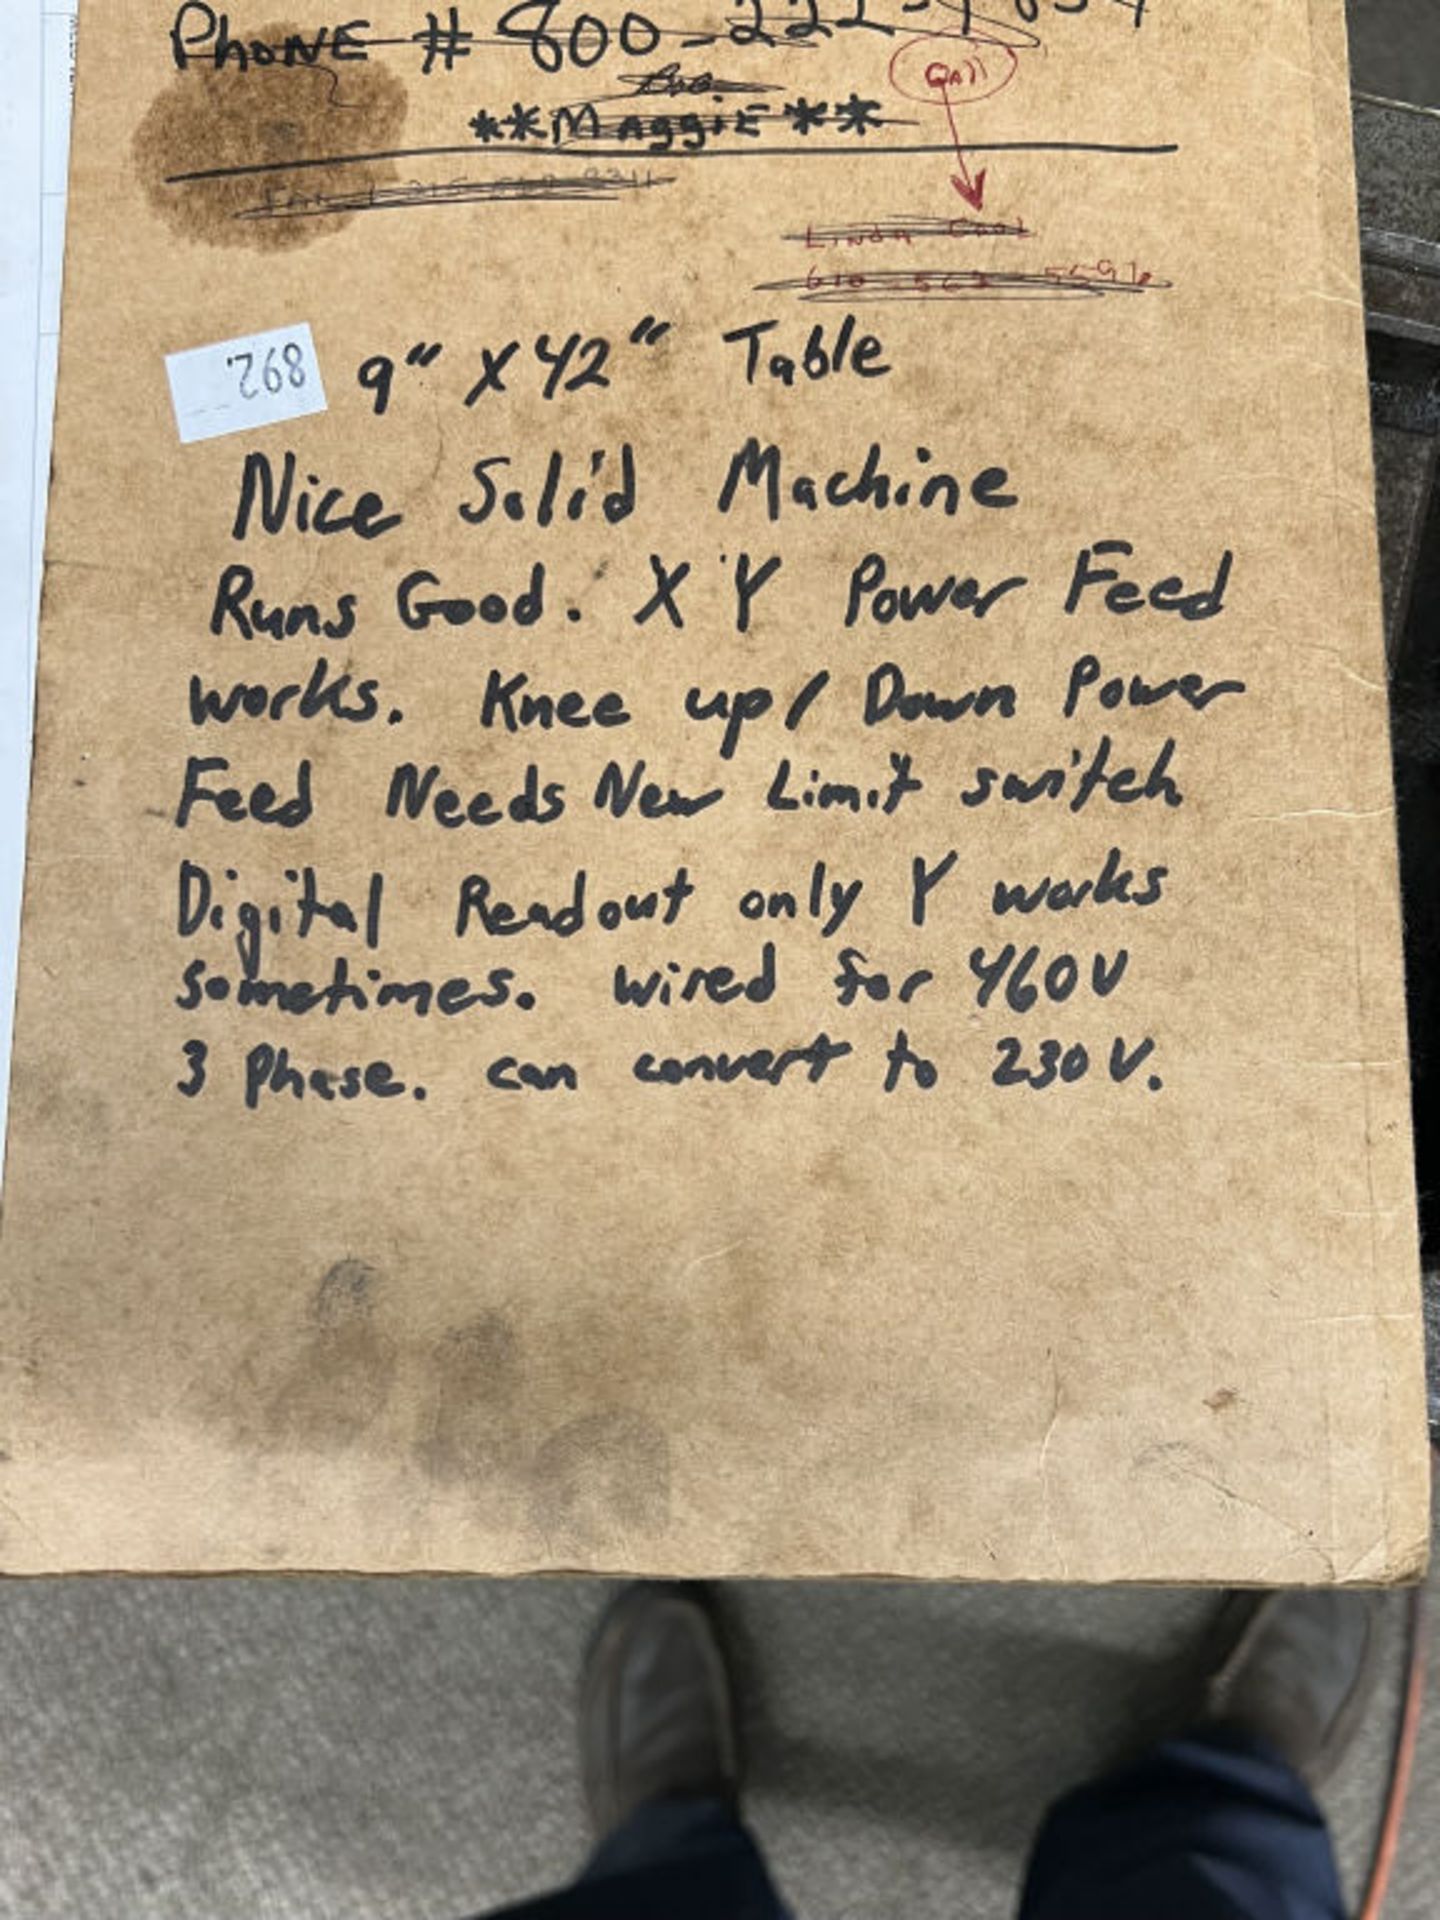 PHONE # 800-222-
Call
**MaggiE**
LINDA
892.
9" X 42" Table
Nice Solid Machine
Runs Good. X Y Power Feed
works. Knee up/Down Power
Feed Needs New Limit switch
Digital Readout only Y works
sometimes. wired for 460V
3 Phase. can convert to 230V.